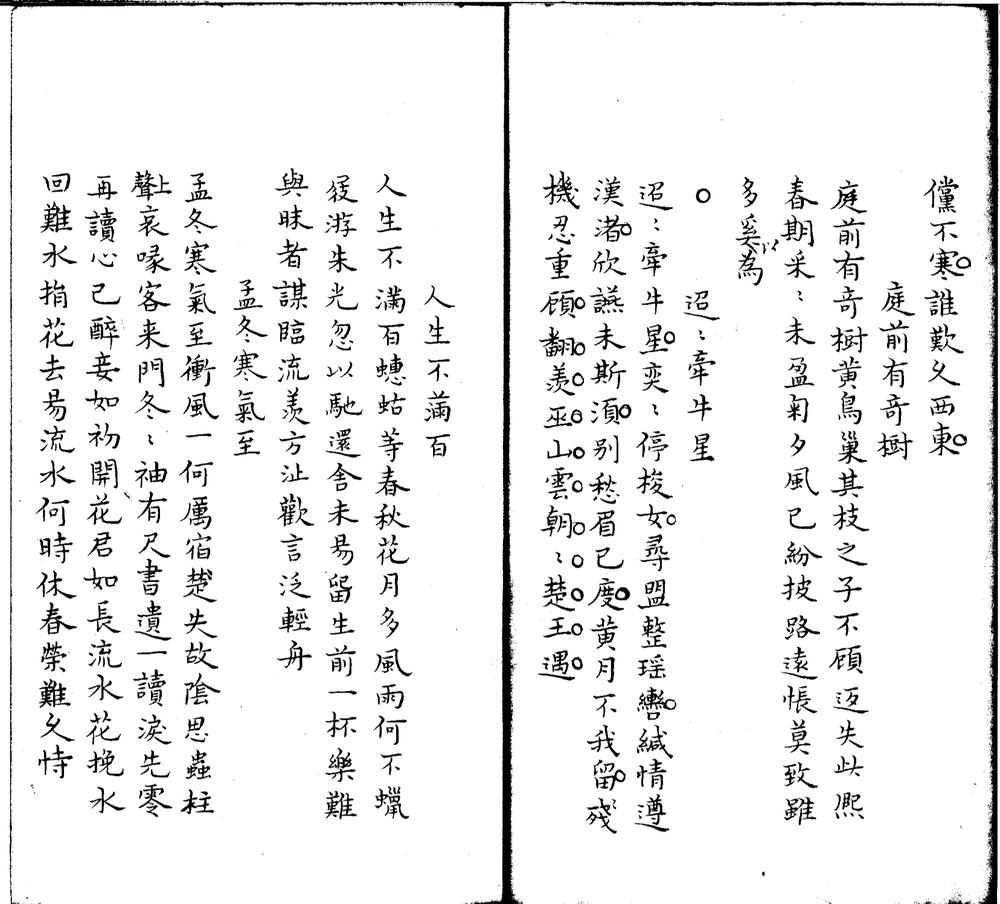 儻不寒誰歎久西東
庭前有奇樹
庭前有奇樹黄鳥巢其枝之子不顧返失此熙
春期采〻未盈匊夕風已紛披路遠悵莫致雖
多奚以為
迢〻牽牛星
迢〻牽牛星奕〻停梭女尋盟整瑶轡緘情遵
漢渚欣讌未斯湏别愁眉已度黄月不我留殘
機忍重顧翻羨巫山雲朝〻楚王遇
人生不滿百
人生不滿百蟪蛄等春秋花月多風雨何不蠟
屐游朱光忽以馳還舍未易留生前一杯樂難
與昧者謀臨流羡方沚歡言泛輕舟
孟冬寒氣至
孟冬寒氣至衝風一何厲宿楚失故陰思蟲柱
上聲哀喙客来門冬〻袖有尺書遺一讀淚先零
再讀心已醉妾如初開花君如長流水花挽水
回難水捐花去易流水何時休春榮難久恃